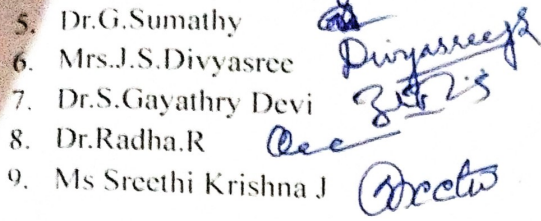 5. Dr.G.Sumathy
6. Mrs.J.S.Divyasree Divyasreejs
7. Dr.S.Gayathry Devi
8. Dr.Radha.R
9. Ms Sreethi Krishna J